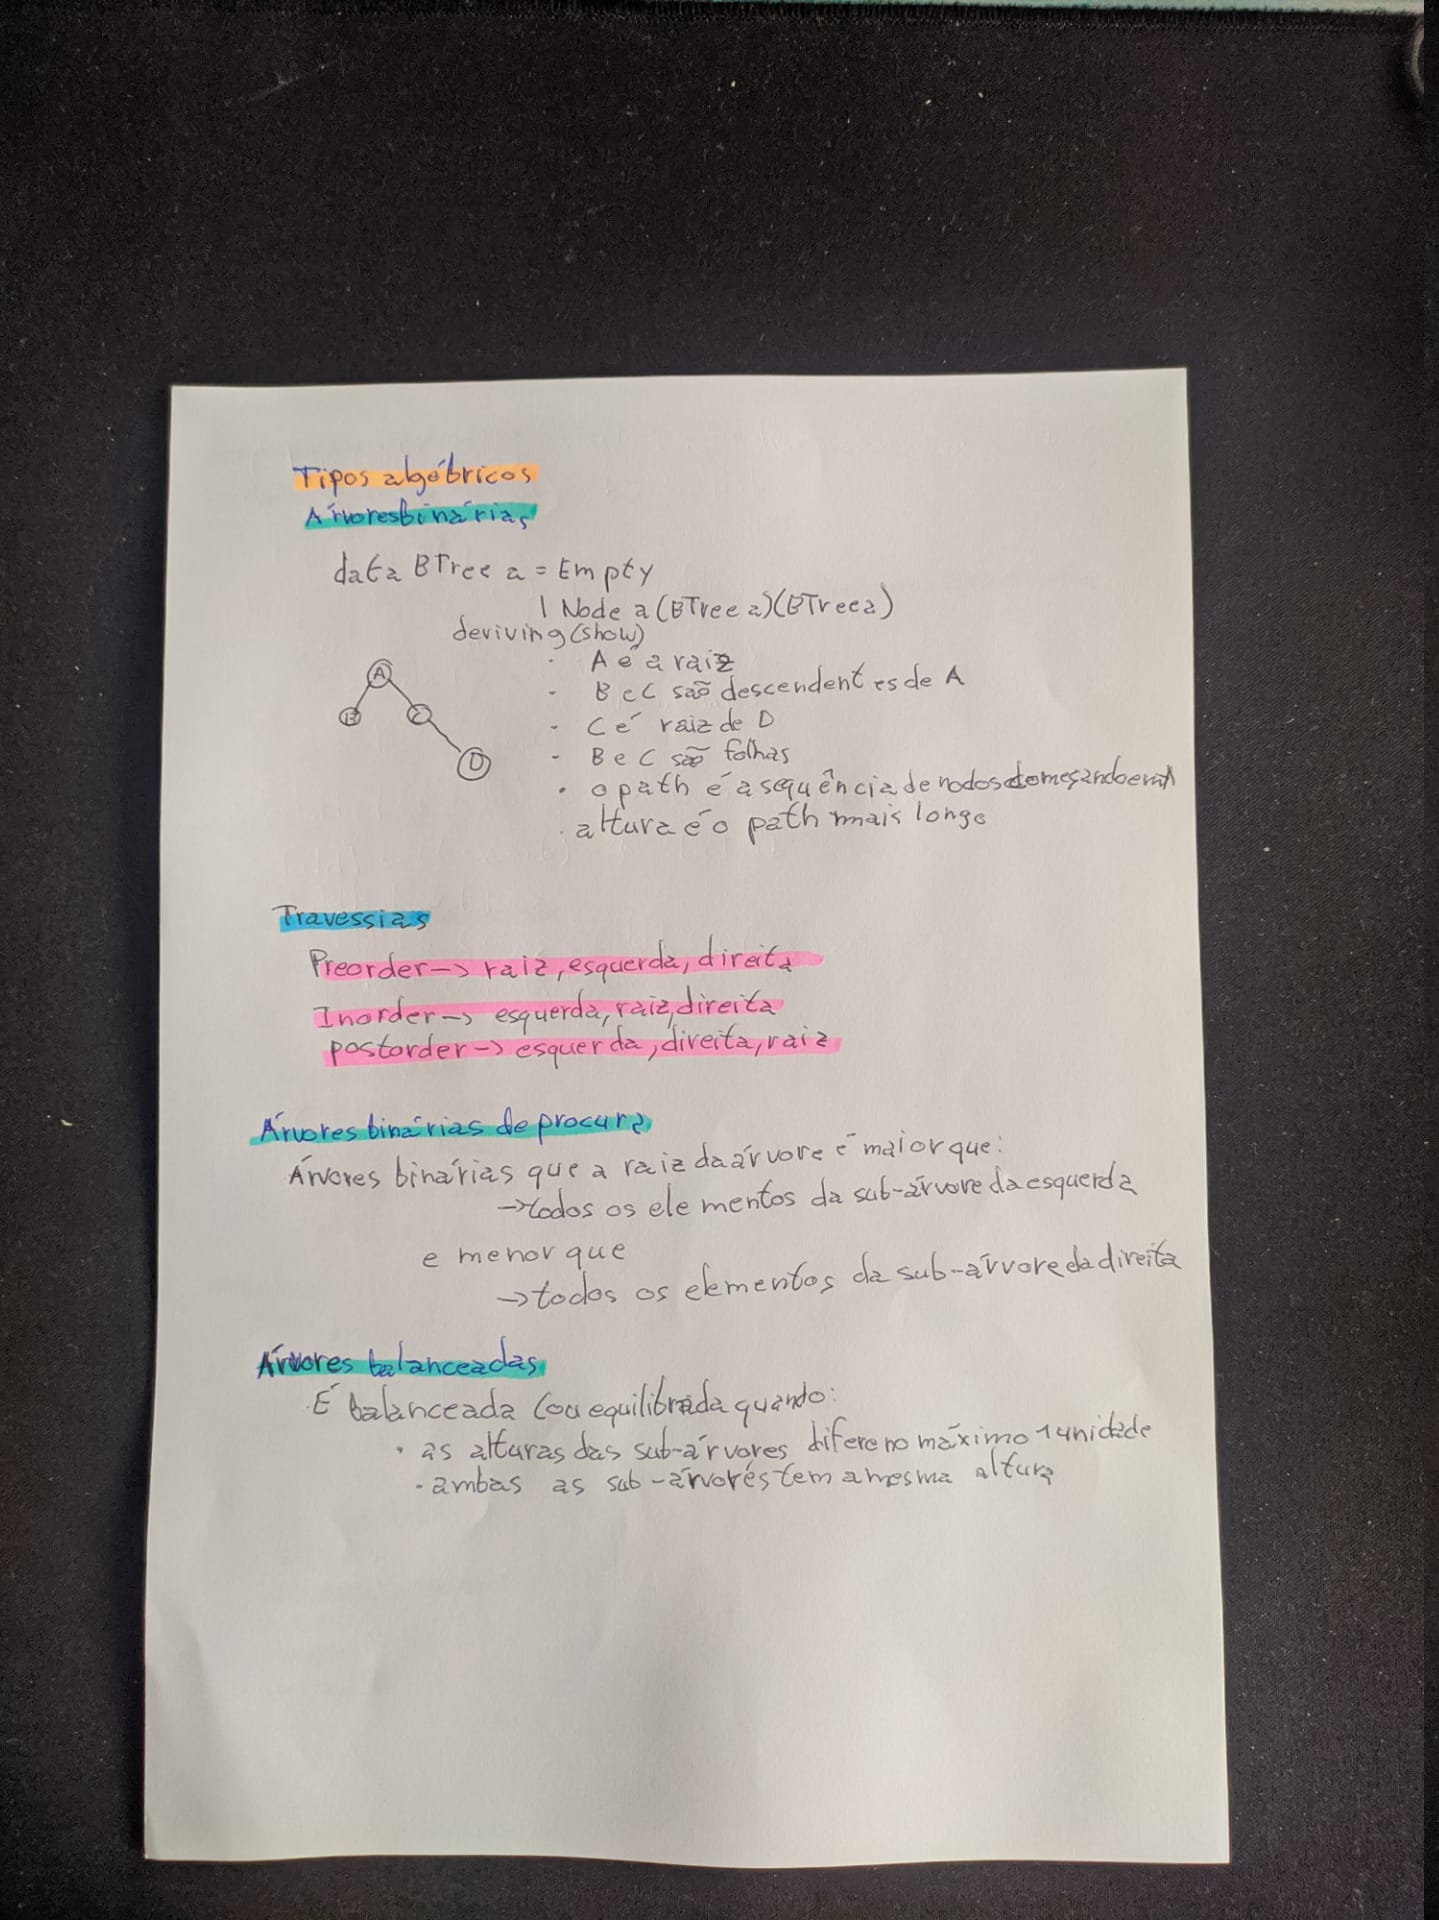 Tipos algébricos
Árvores binárias
data BTree a = Empty
| Node a (BTree a)(BTree a)
deriving (show)
A
B
C
D
· A é a raiz
- B e C são descendentes de A
- C é raiz de D
- B e C são folhas
• o path é a sequência de nodos começando em
· altura é o path mais longo
Travessias
Preorder -> raiz, esquerda, direita
Inorder -> esquerda, raiz, direita
postorder -> esquerda, direita, raiz
Árvores binárias de procura
Árvores binárias que a raiz da árvore é maior que:
-> todos os elementos da sub-árvore da esquerda
e menor que
-> todos os elementos da sub-árvore da direita
Árvores balanceadas
É balanceada (ou equilibrada quando:
• as alturas das sub-árvores difere no máximo 1 unidade
- ambas as sub-árvores tem a mesma altura